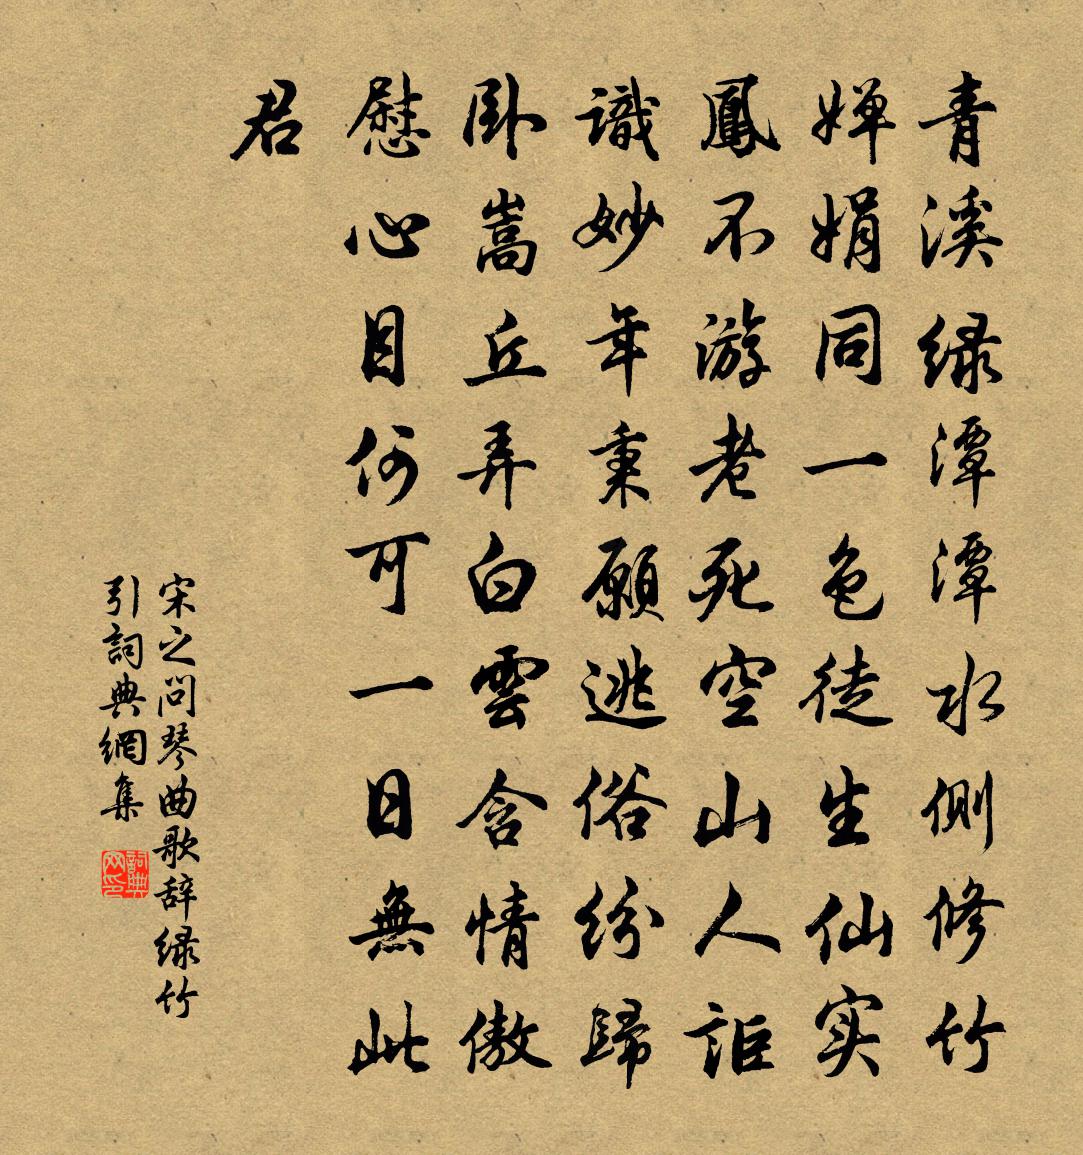 青溪绿潭潭水侧修竹
婵娟同一色徒生仙实
鳳不游老死空山人詎
識妙年秉願逃俗紛歸
卧嵩丘弄白雲含情傲
慰心目何可一日無此
君
宋之问琴曲歌辞绿竹
引詞典網集
詞典网印